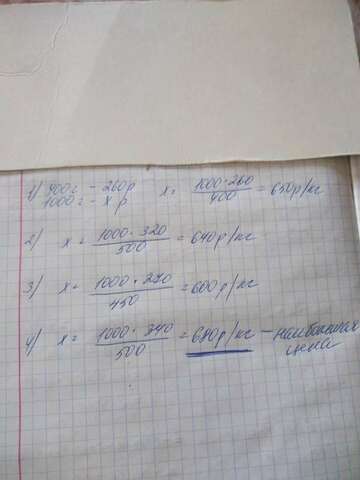 1) 400 г - 260 р x = 1000·260/400 = 650 р/кг
1000 г - x р
2) x = 1000·320/500 = 640 р/кг
3) x = 1000·270/450 = 600 р/кг
4) x = 1000·340/500 = 680 р/кг - наибольшая
цена